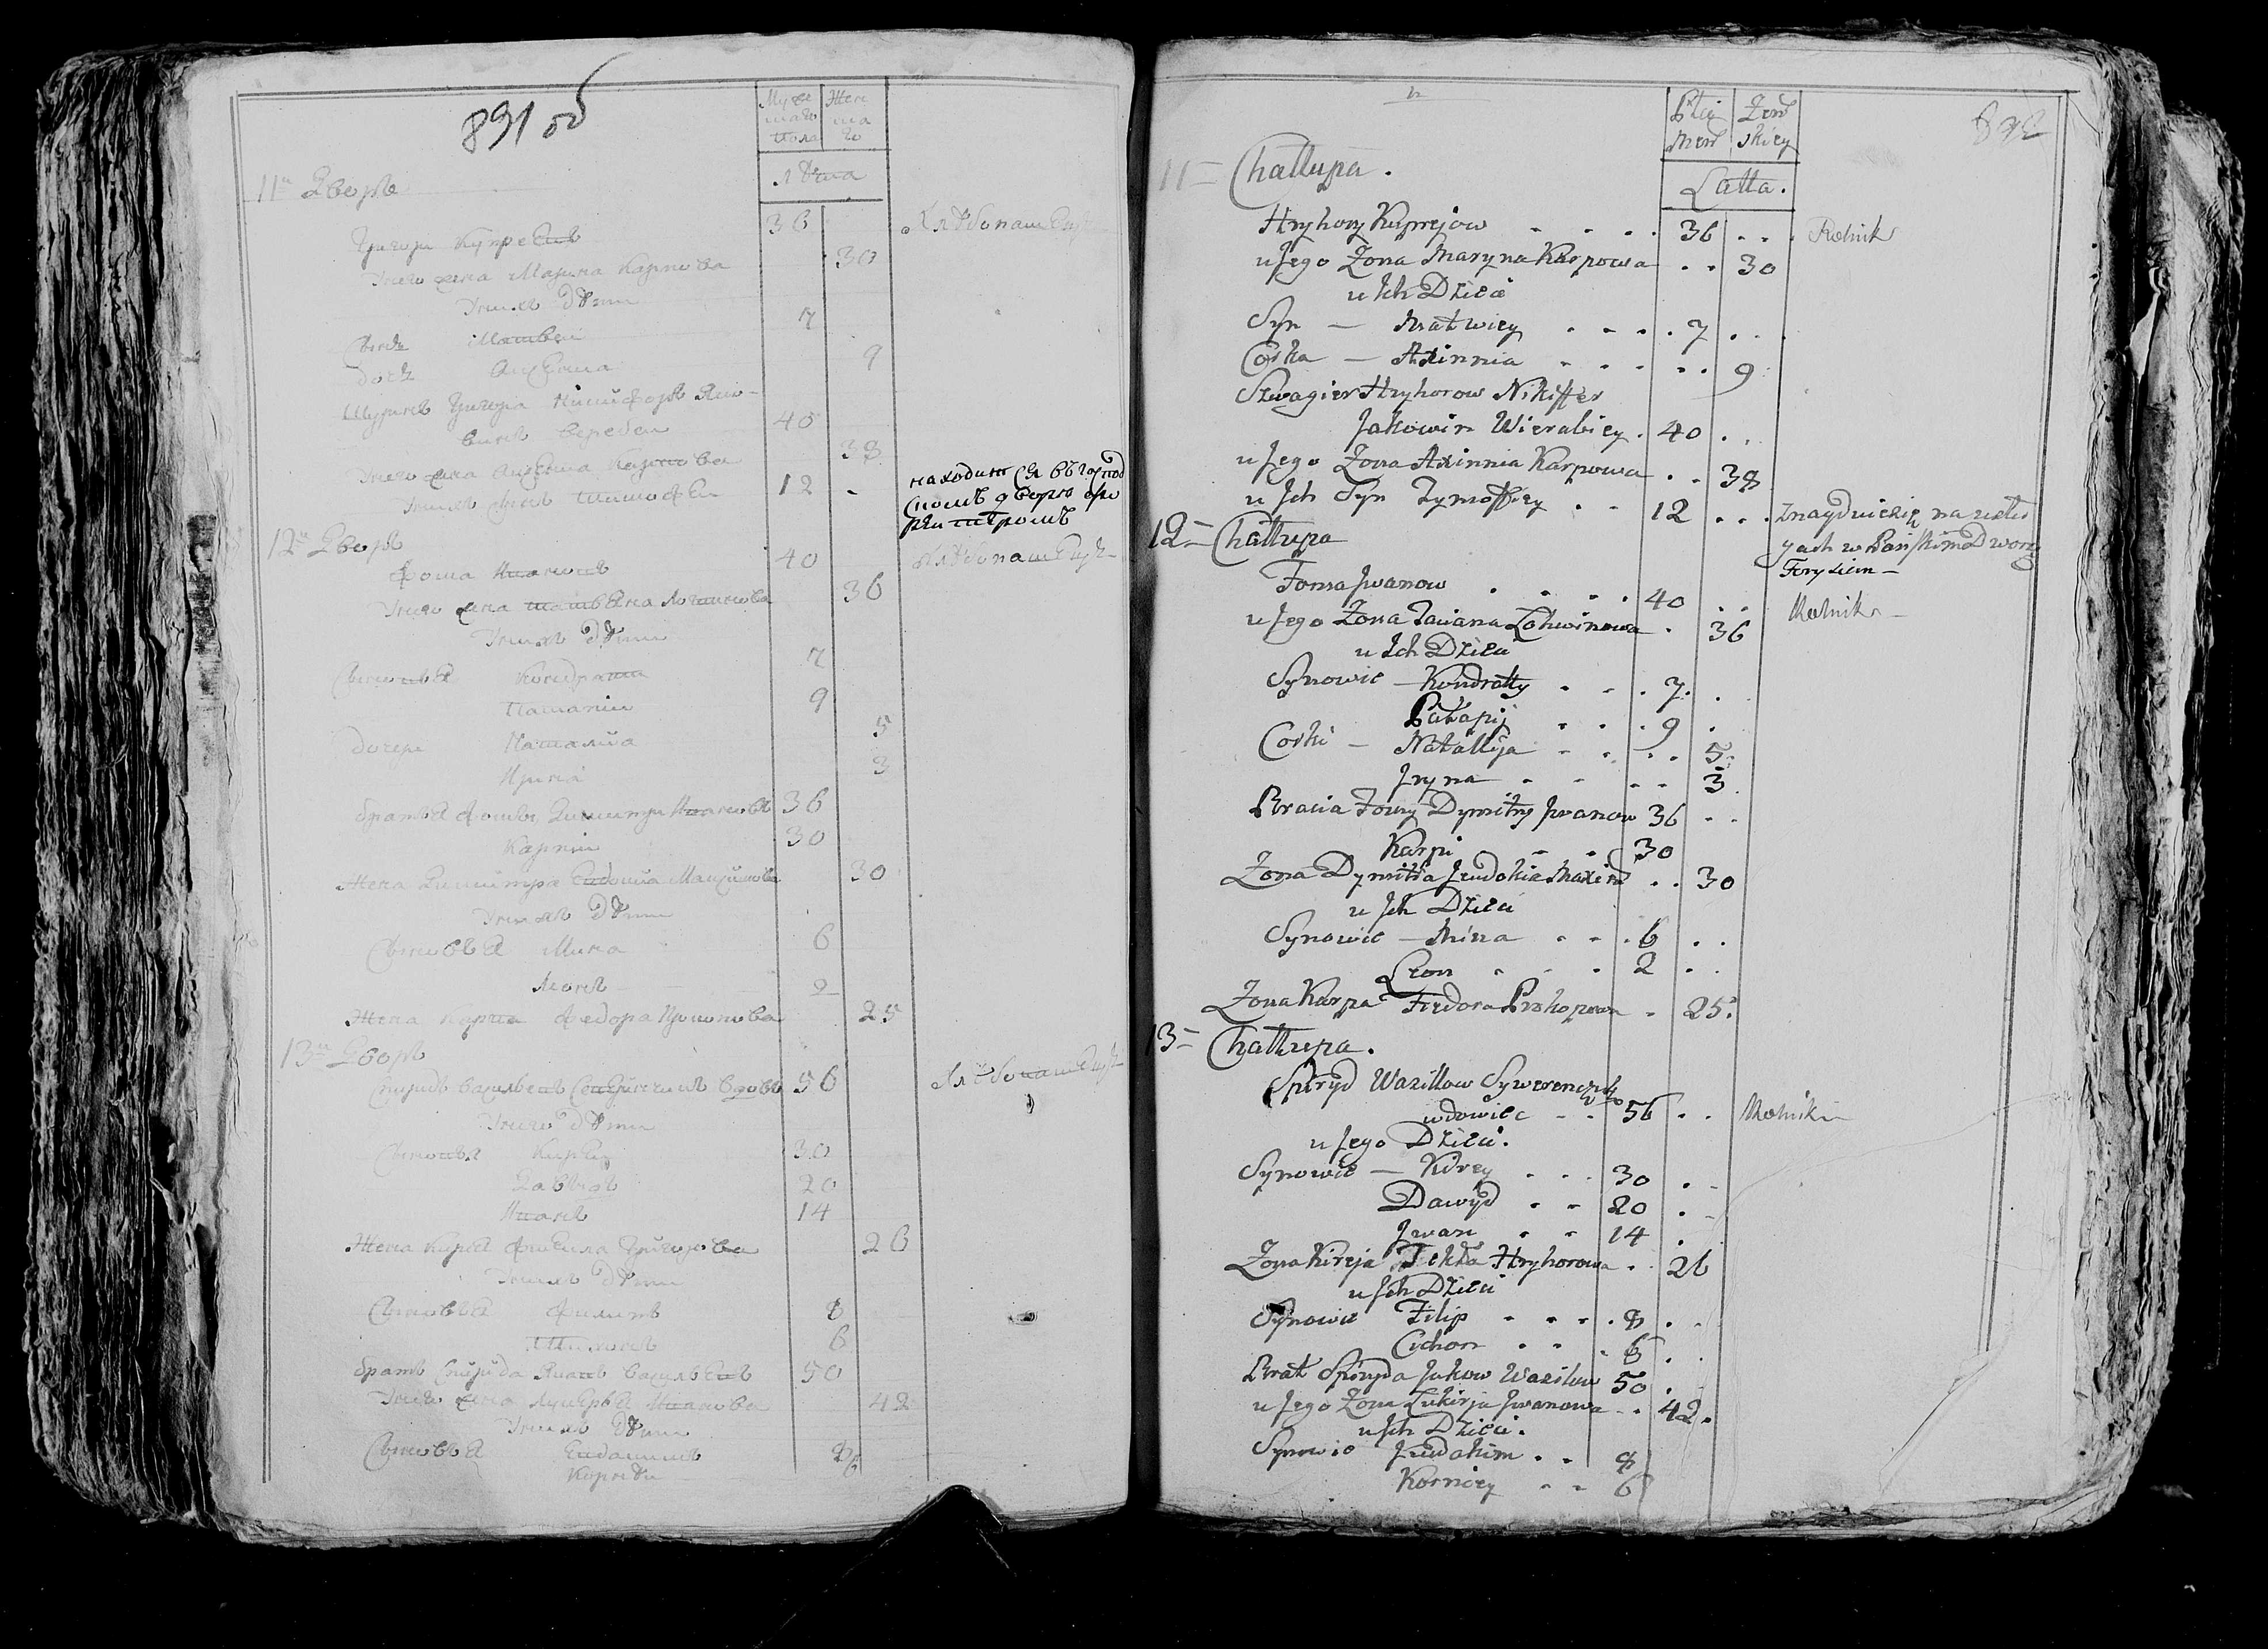 891 об
Муже
скаго
пола
Жен
ска
го
Лѣта
11й Дворъ
Григори Купреевъ 36 Хлѣбопашецъ
У него жена Марина Карпова 30
У нихъ дѣти
Сынъ Матвеи 7
Дочь Аксенна 9
Шуринъ Григора Никифоръ Яко-
винъ Веребеи 40
У него жена Аксенна Карпова 38
У нихъ сынъ Тимофеи 12 -
находится въ господ
скомъ дворѣ фо
рейтеромъ
12й Дворъ
Фома Ивановъ 40 Хлѣбопашецъ
У него жена Татьяна Логинова 36
У нихъ дѣти
Сыновья Кондрати 7
Патапи 9
Дочери Наталья 5
Ирина 3
Братья Фомы Димитри Ивановъ 36
Карпи 30
Жена Димитра Евдокия Максимова 30
У нихъ дѣти
Сыновья Мина 6
Леонъ 2
Жена Карпа Федора Прокопова 25
13й Дворъ
Спиридъ Васильевъ вдовъ 56 Хлѣбопашецъ
У него дѣти
Сыновья Киреи 30
Давидъ 20
Иванъ 14
Жена Кирея Григорова 26
У нихъ дѣти
Сыновья Филипъ 8
Тихонъ 6
Братъ Спирида Яковъ Васильевъ 50
У него жена Лукерья Иванова 42
У нихъ дѣти
Сыновья Евдакимъ 8
Корнѣи 6
Płci
Męs
Żeń
skiey
892
Latta.
11 - Chattupa.
Hryhory Kuprejow . . . . 36 . . . Rolnik
u Jego Zona Maryna Karpowa . . 30
u Ich Dzieci
Syn — Matwiey . . . . 7 . . .
Corka — Axinnia . . . . . . 9
Szwagier Hryhorow Nikiffer
Jakowin Wierabiey . 40 . .
u Jego Zona Axinnia Karpowa . . 38
u Ich Syn Tymoffiey . . 12 . . .
Znayduie się na usłu
gach w Pańskim Dworze
Forysiem -
12 - Chattupa
Foma Iwanow . . . . 40 . . Rolnik -
u Jego Zona Taciana Lohwinowa . 36
u Ich Dzieci
Synowie — Kondratty . . . 7 . .
Patapij . . . . 9 .
Corki — Natallija . . . . 5.
Iryna . . . . 3
Bracia Fomy Dymitry Iwanow 36 . .
Karpi . . 30
Zona Dymitra Jewdokia Maxim . . 30
u Ich Dzieci
Synowie — Mina . . . 6 . .
Leon . . . 2 . .
Zona Karpa Fiedora Prokopowa . 25.
13 - Chattupa.
Spiryd Wasillow Sywerenczyk
wdowiec . . 56 . . Rolnik -
u Jego Dzieci.
Synowie — Kirey . . . 30 . .
Dawyd . . 20 . .
Iwan . . 14 .
Zona Kireja Tekla Hryhorowa . . 26
u Ich Dzieci
Synowie Filip . . . . 8 . .
Cichon . . . 6 . .
Brat Spiryda Jakow Wasilow 50 . .
u Jego Zona Lukirja Iwanowa . . 42.
u Ich Dzieci.
Synowie Jewdakim . . 8
Korniey . . 6